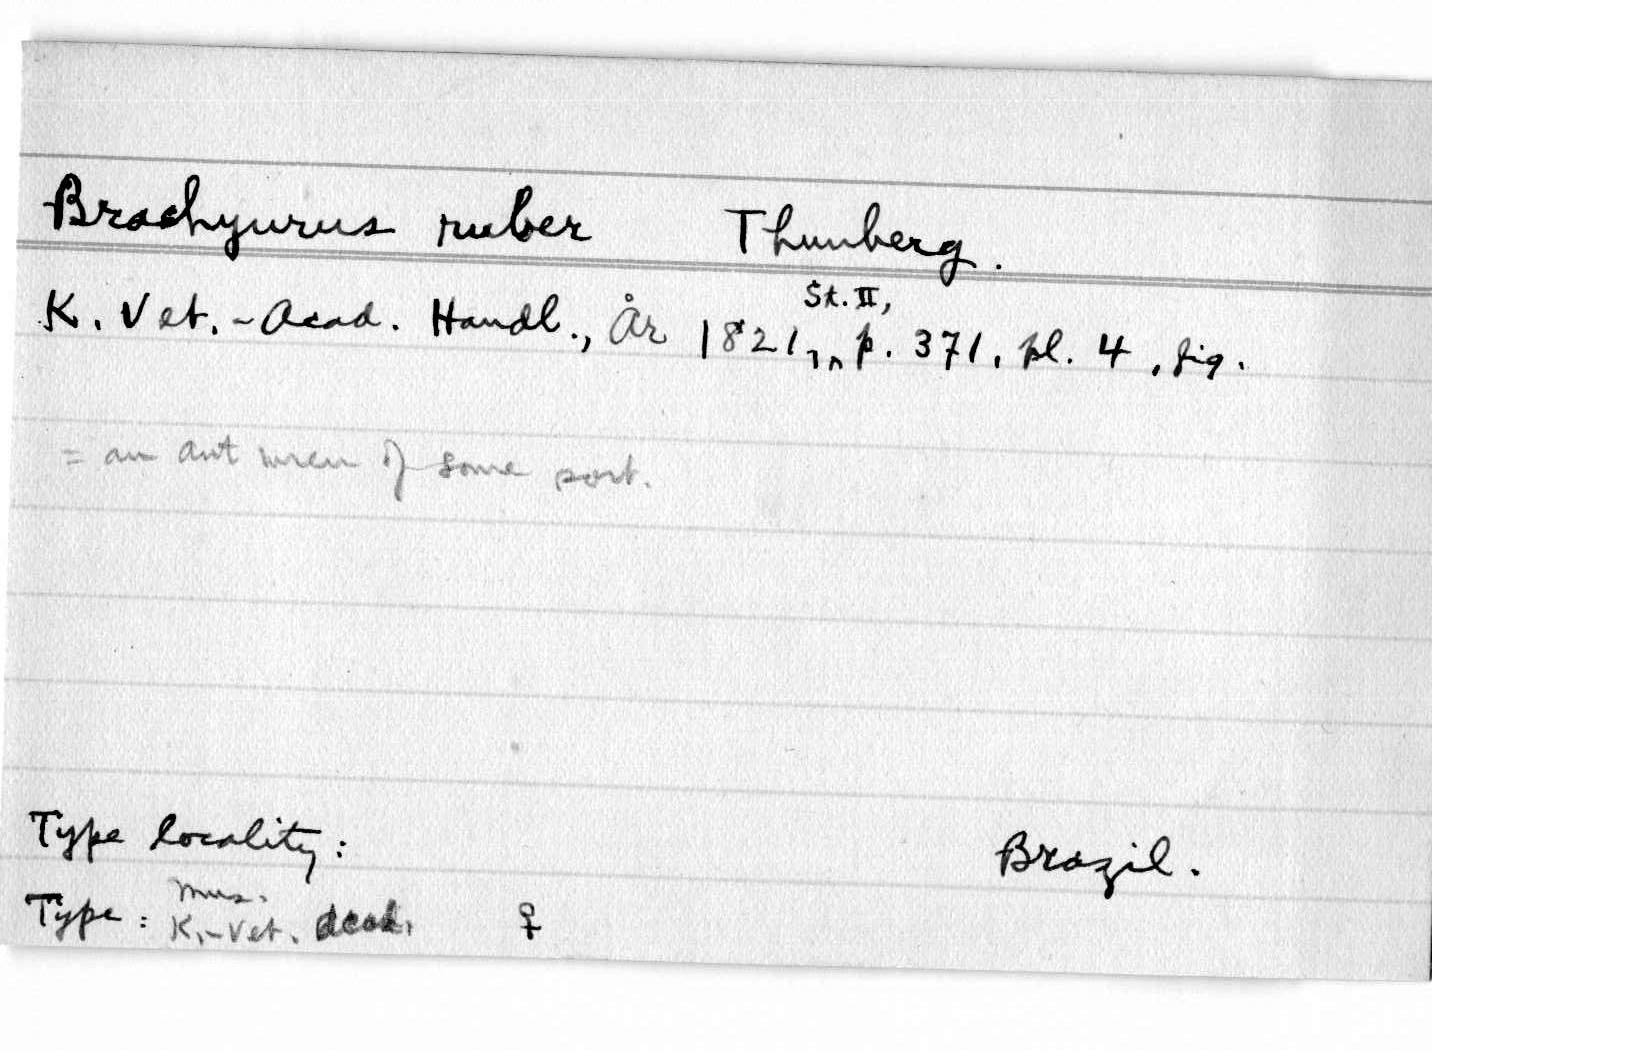 Brachyurus ruber Thunberg.
St. II,
K. Vet.-Acad. Handl., År 1821, p. 371, pl. 4, fig.
= an ant wren of some sort.
Type locality: Brazil.
Mus.
Type: K.-Vet. Acad. ♀